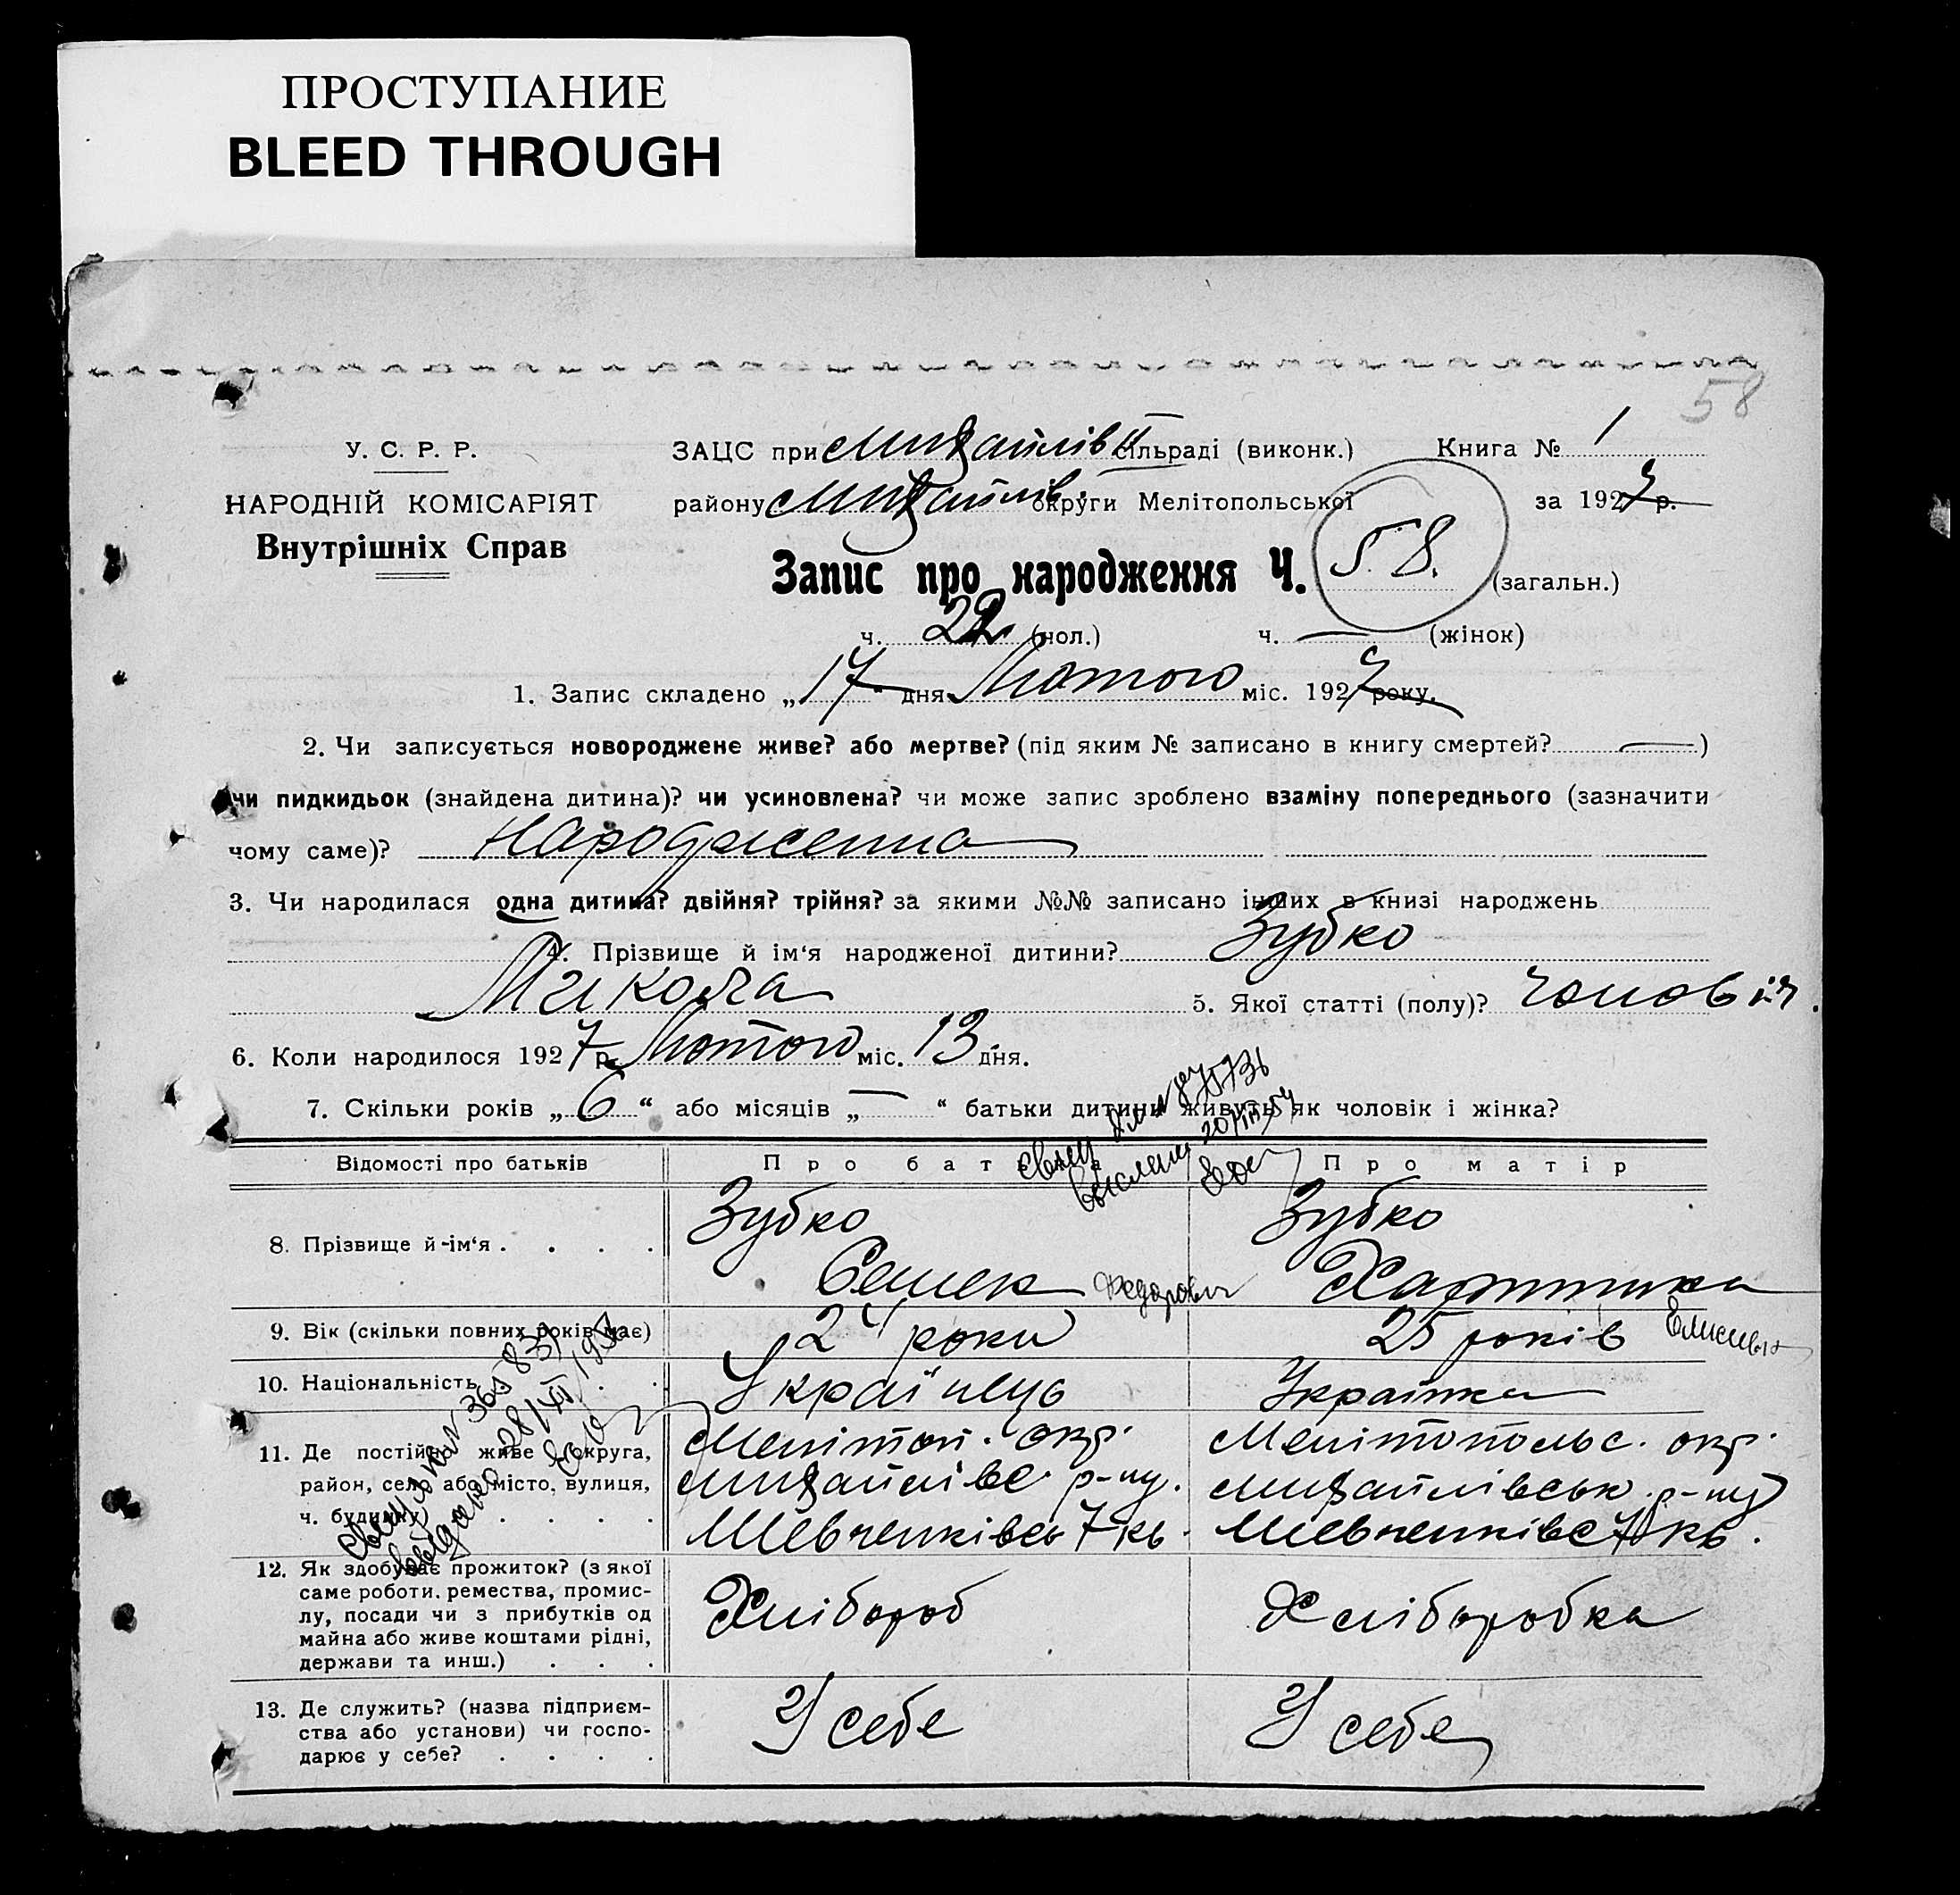 ПРОСТУПАНИЕ
BLEED THROUGH
58
У. С. Р. Р.
НАРОДНІЙ КОМІСАРІЯТ
Внутрішніх Справ
ЗАЦС при Михайлівк сільраді (виконк.) Книга № 1
району Михайлів. округи Мелітопольської за 1927 р.
Запис про народження Ч. 58. (загальн.)
ч. 22 (чол.) ч. — (жінок)
1. Запис складено „17" дня Лютого міс. 1927 року.
2. Чи записується новороджене живе? або мертве? (під яким № записано в книгу смертей? —)
чи пидкидьок (знайдена дитина)? чи усиновлена? чи може запис зроблено взаміну попереднього (зазначити
чому саме)? Народженна
3. Чи народилася одна дитина? двійня? трійня? за якими №№ записано інших в книзі народжень
4. Прізвище й ім'я народженої дитини? Зубко
Микола 5. Якої статті (полу)? чолов іч.
6. Коли народилося 1927 р. Лютого міс. 13 дня.
7. Скільки років „6“ або місяців „—“ батьки дитини живуть як чоловік і жінка?
20/III-54
Відомості про батьків Про батька Про матір
8. Прізвище й ім'я . . . . Зубко Семен Федорович Зубко Харитина
9. Вік (скільки повних років має) 24 роки 25 років
10. Національність . . . Українець Українка
11. Де постійно живе (округа, район, село або місто, вулиця, ч. будинку) . . . . Меліton. окр. Михайлівс. р-ну. Шевченківсь 7 кв. Мелітопольс. окр. Михайлівськ. р-ну Шевченківс 7 кв.
12. Як здобуває прожиток? (з якої саме роботи. ремества, промислу, посади чи з прибутків од майна або живе коштами рідні, держави та инш.) . . . Хлібороб Хліборобка
13. Де служить? (назва підприємства або установи) чи господарює у себе? . . . . У себе У себе